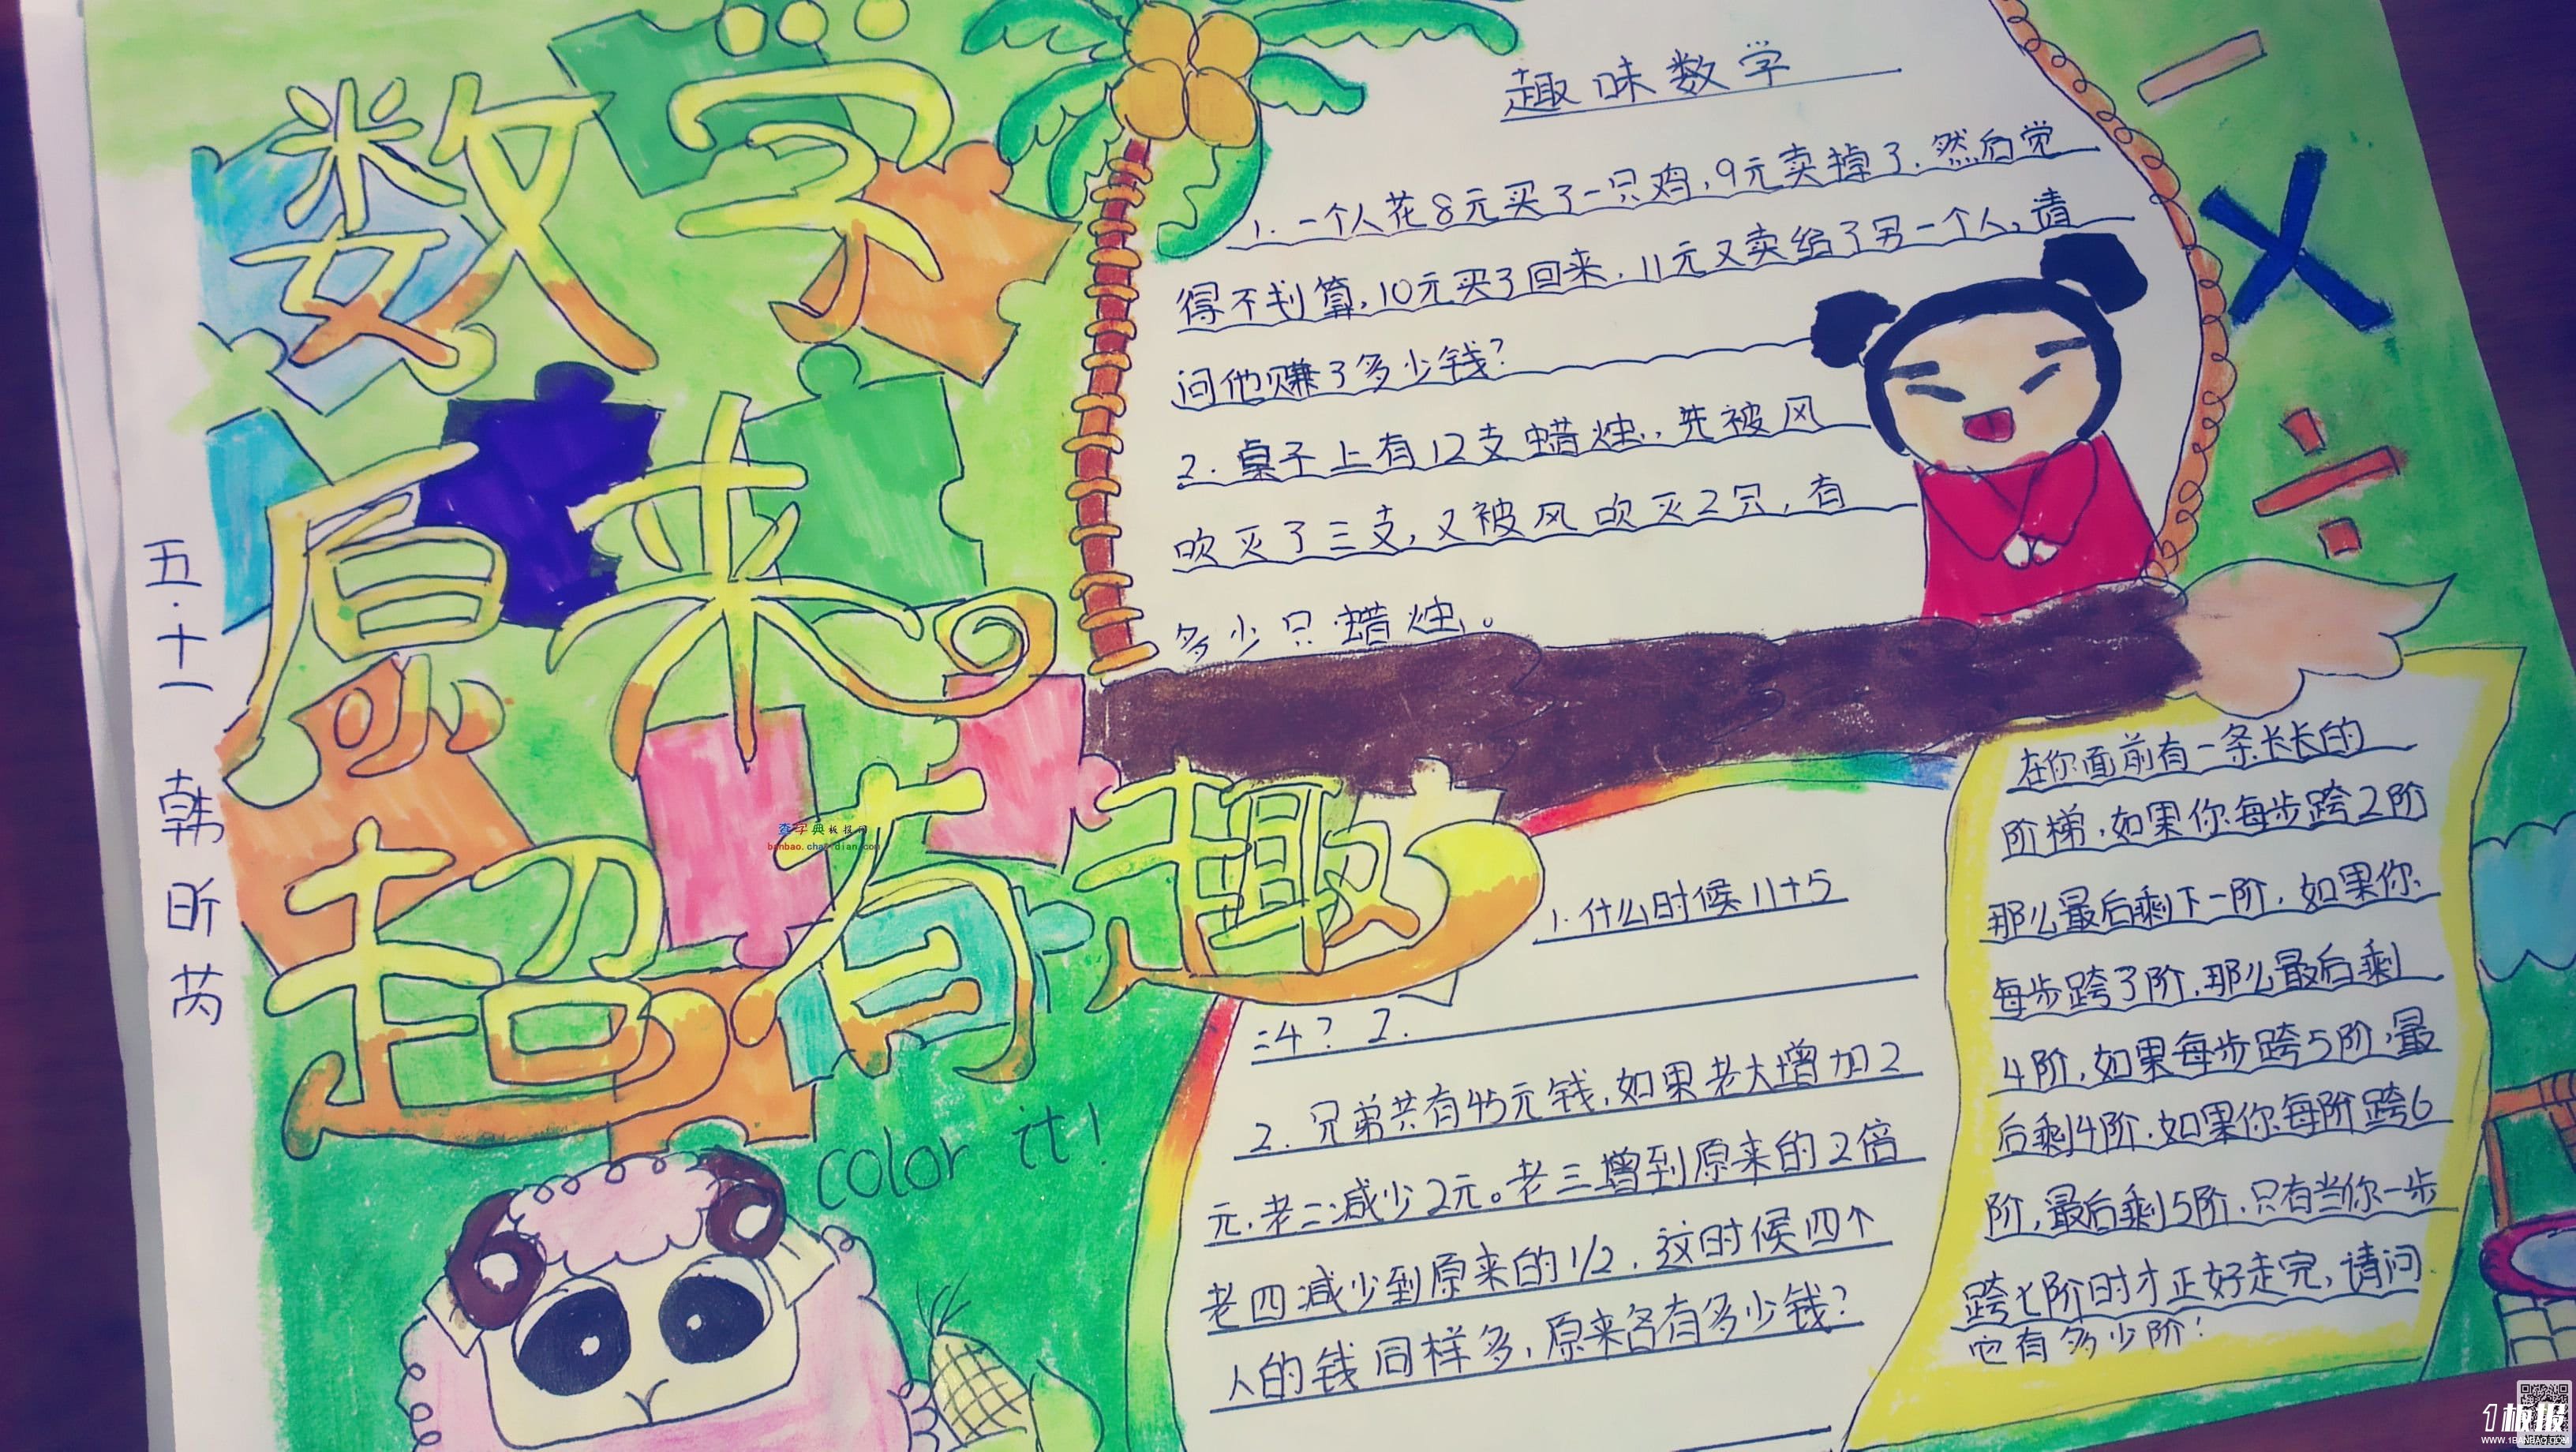 数学
原来
超有趣
五·十一 韩昕芮
查字典板报网
banbao.chazidian.com
color it!
趣味数学
1. 一个人花8元买了一只鸡,9元卖掉了.然后觉
得不划算,10元买了回来,11元又卖给了另一个人,请
问他赚了多少钱?
2. 桌子上有12支蜡烛,先被风
吹灭了三支,又被风吹灭2只,有
多少只蜡烛。
1.什么时候11+5
=4? 2.
2. 兄弟共有45元钱,如果老大增加2
元,老二减少2元。老三增到原来的2倍
老四减少到原来的1/2,这时候四个
人的钱同样多,原来各有多少钱?
在你面前有一条长长的
阶梯,如果你每步跨2阶
那么最后剩下一阶,如果你
每步跨3阶,那么最后剩
4阶,如果每步跨5阶,最
后剩4阶.如果你每阶跨6
阶,最后剩5阶.只有当你一步
跨七阶时才正好走完,请问
它有多少阶!
1板报
WWW.1BANBAO.COM